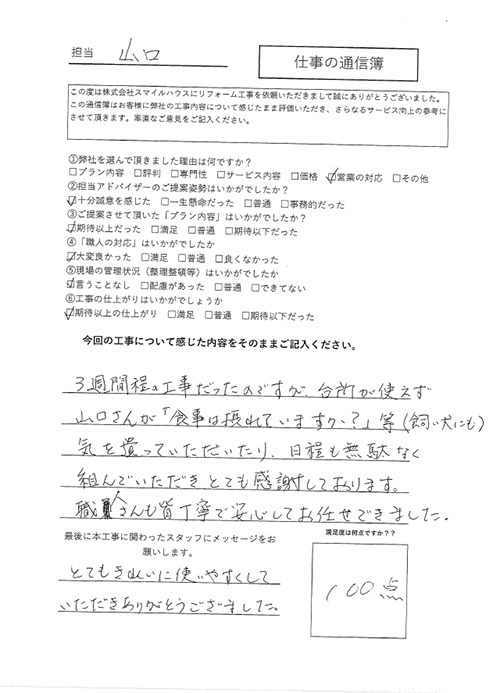 担当 山口
仕事の通信簿
この度は株式会社スマイルハウスにリフォーム工事を依頼いただきまして誠にありがとうございました。
この通信簿はお客様に弊社の工事内容について感じたまま評価いただき、さらなるサービス向上の参考に
させて頂きます。率直なご意見をご記入ください。
①弊社を選んで頂きました理由は何ですか?
□プラン内容 □評判 □専門性 □サービス内容 □価格 ☑営業の対応 □その他
②担当アドバイザーのご提案姿勢はいかがでしたか?
☑十分誠意を感じた □一生懸命だった □普通 □事務的だった
③ご提案させて頂いた「プラン内容」はいかがでしたか?
☑期待以上だった □満足 □普通 □期待以下だった
④「職人の対応」はいかがでしたか
☑大変良かった □満足 □普通 □良くなかった
⑤現場の管理状況（整理整頓等）はいかがでしたか
☑言うことなし □配慮があった □普通 □できてない
⑥工事の仕上がりはいかがでしょうか
☑期待以上の仕上がり □満足 □普通 □期待以下だった
今回の工事について感じた内容をそのままご記入ください。
3週間程の工事だったのですが、台所が使えず
山口さんが「食事は摂れていますか?」等(飼い犬にも)
気を遣っていただいたり、日程も無駄なく
組んでいただきとても感謝しております。
職人さんも皆丁寧で安心してお任せできました。
最後に本工事に関わったスタッフにメッセージをお
願いします。
とてもきれいに使いやすくして
いただきありがとうございました。
満足度は何点ですか??
100点